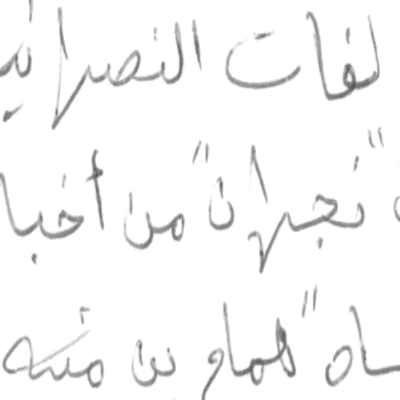 لفات النصرا
"نجران" من أخبا
ساه "همام بن منبه